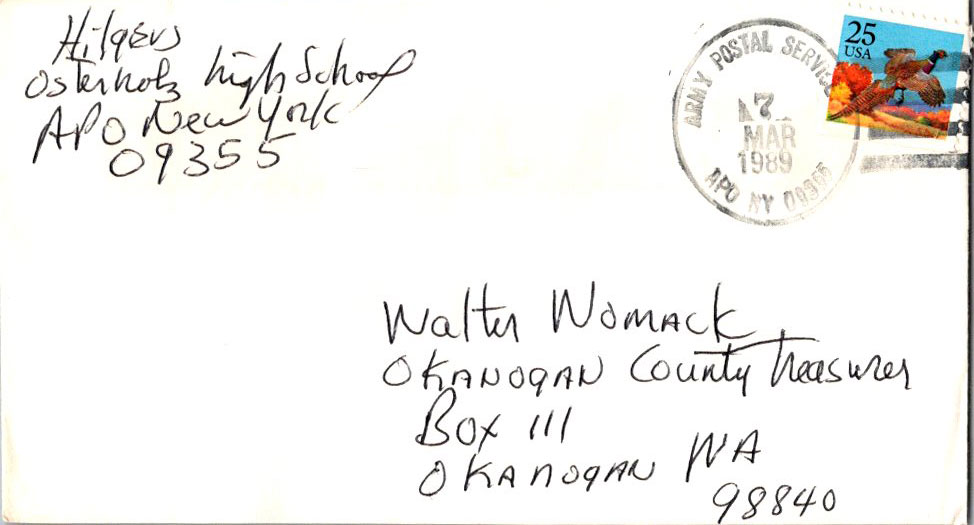 Hilgers
Osterholz high School
APO New York
09355
ARMY POSTAL SERVICE
7
MAR
1989
APO NY 09355
25
USA
Walter Womack
Okanogan County Treasurer
Box 111
Okanogan WA
98840